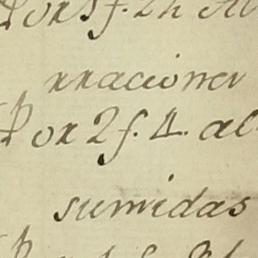 Por 1 f. 2 h Al
rraciones
Por 2 f. 4. al
sumidas